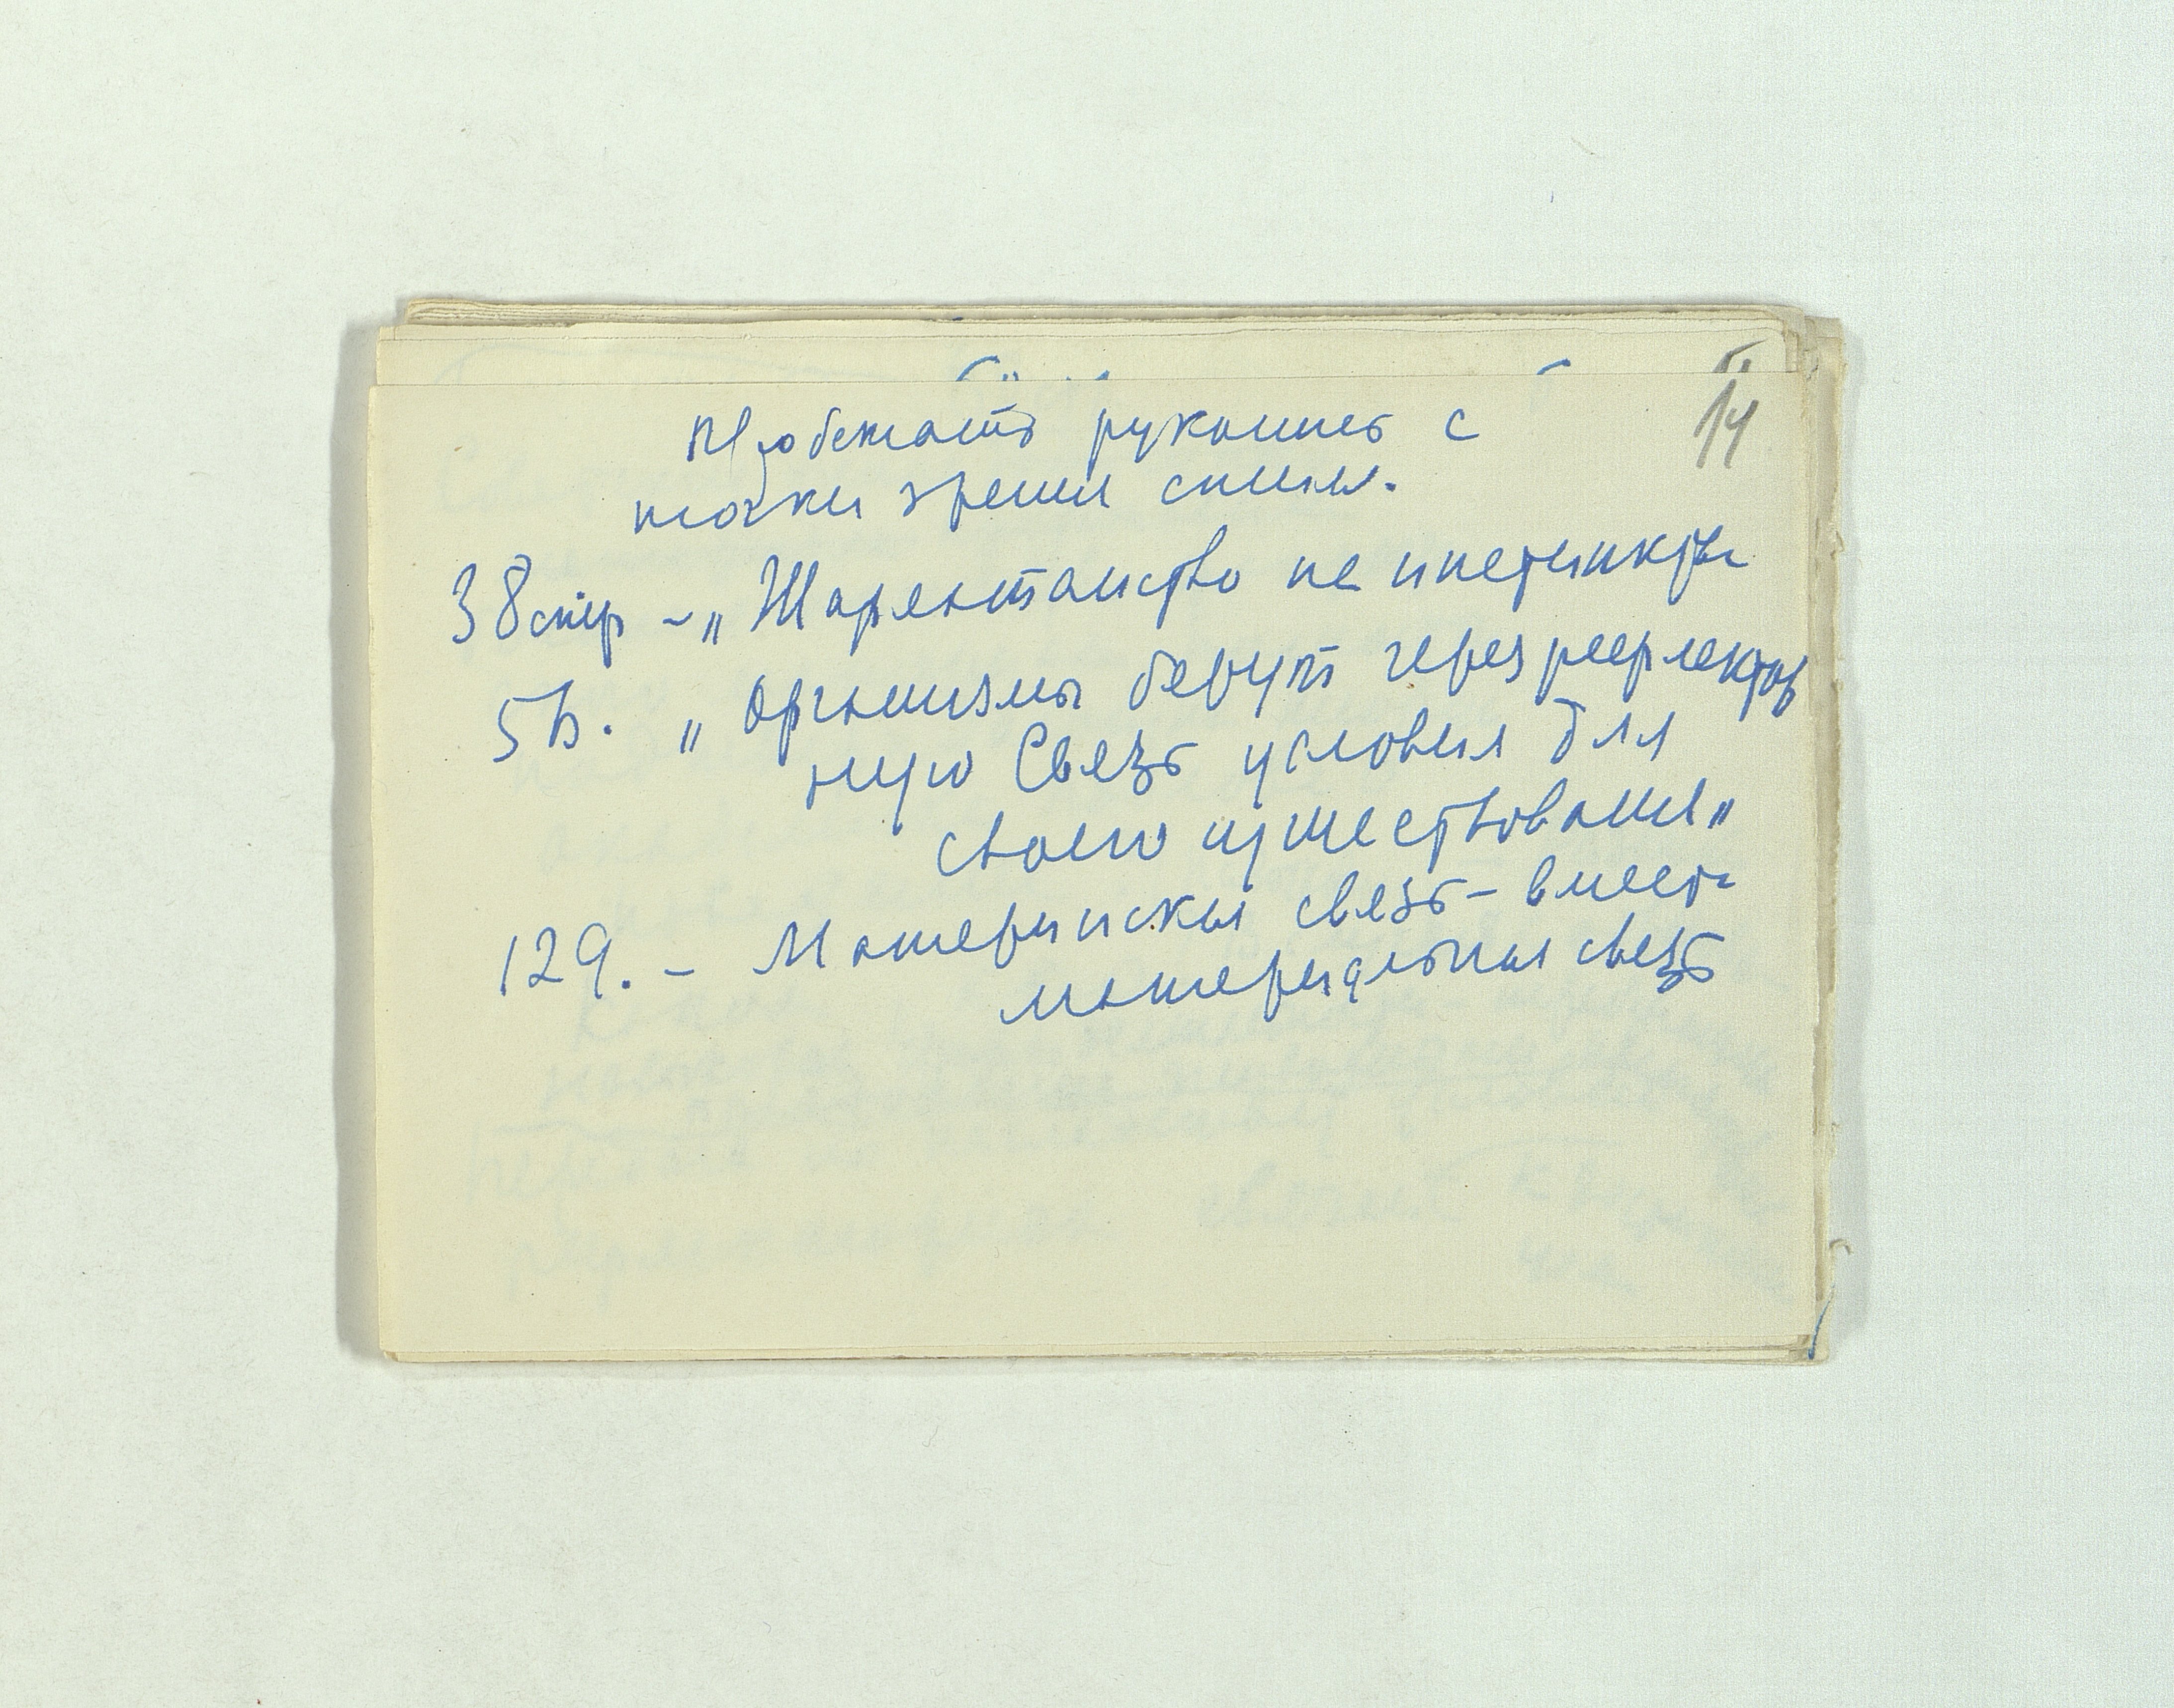 14
Пробежать рукопись с
точки зрения стиля.
38 стр – „Шарлатанство
5 „Организмы берут через рефлектор
ную Связь условия для
своего существования"
129. – Материнская связь – вместо
материальная связь